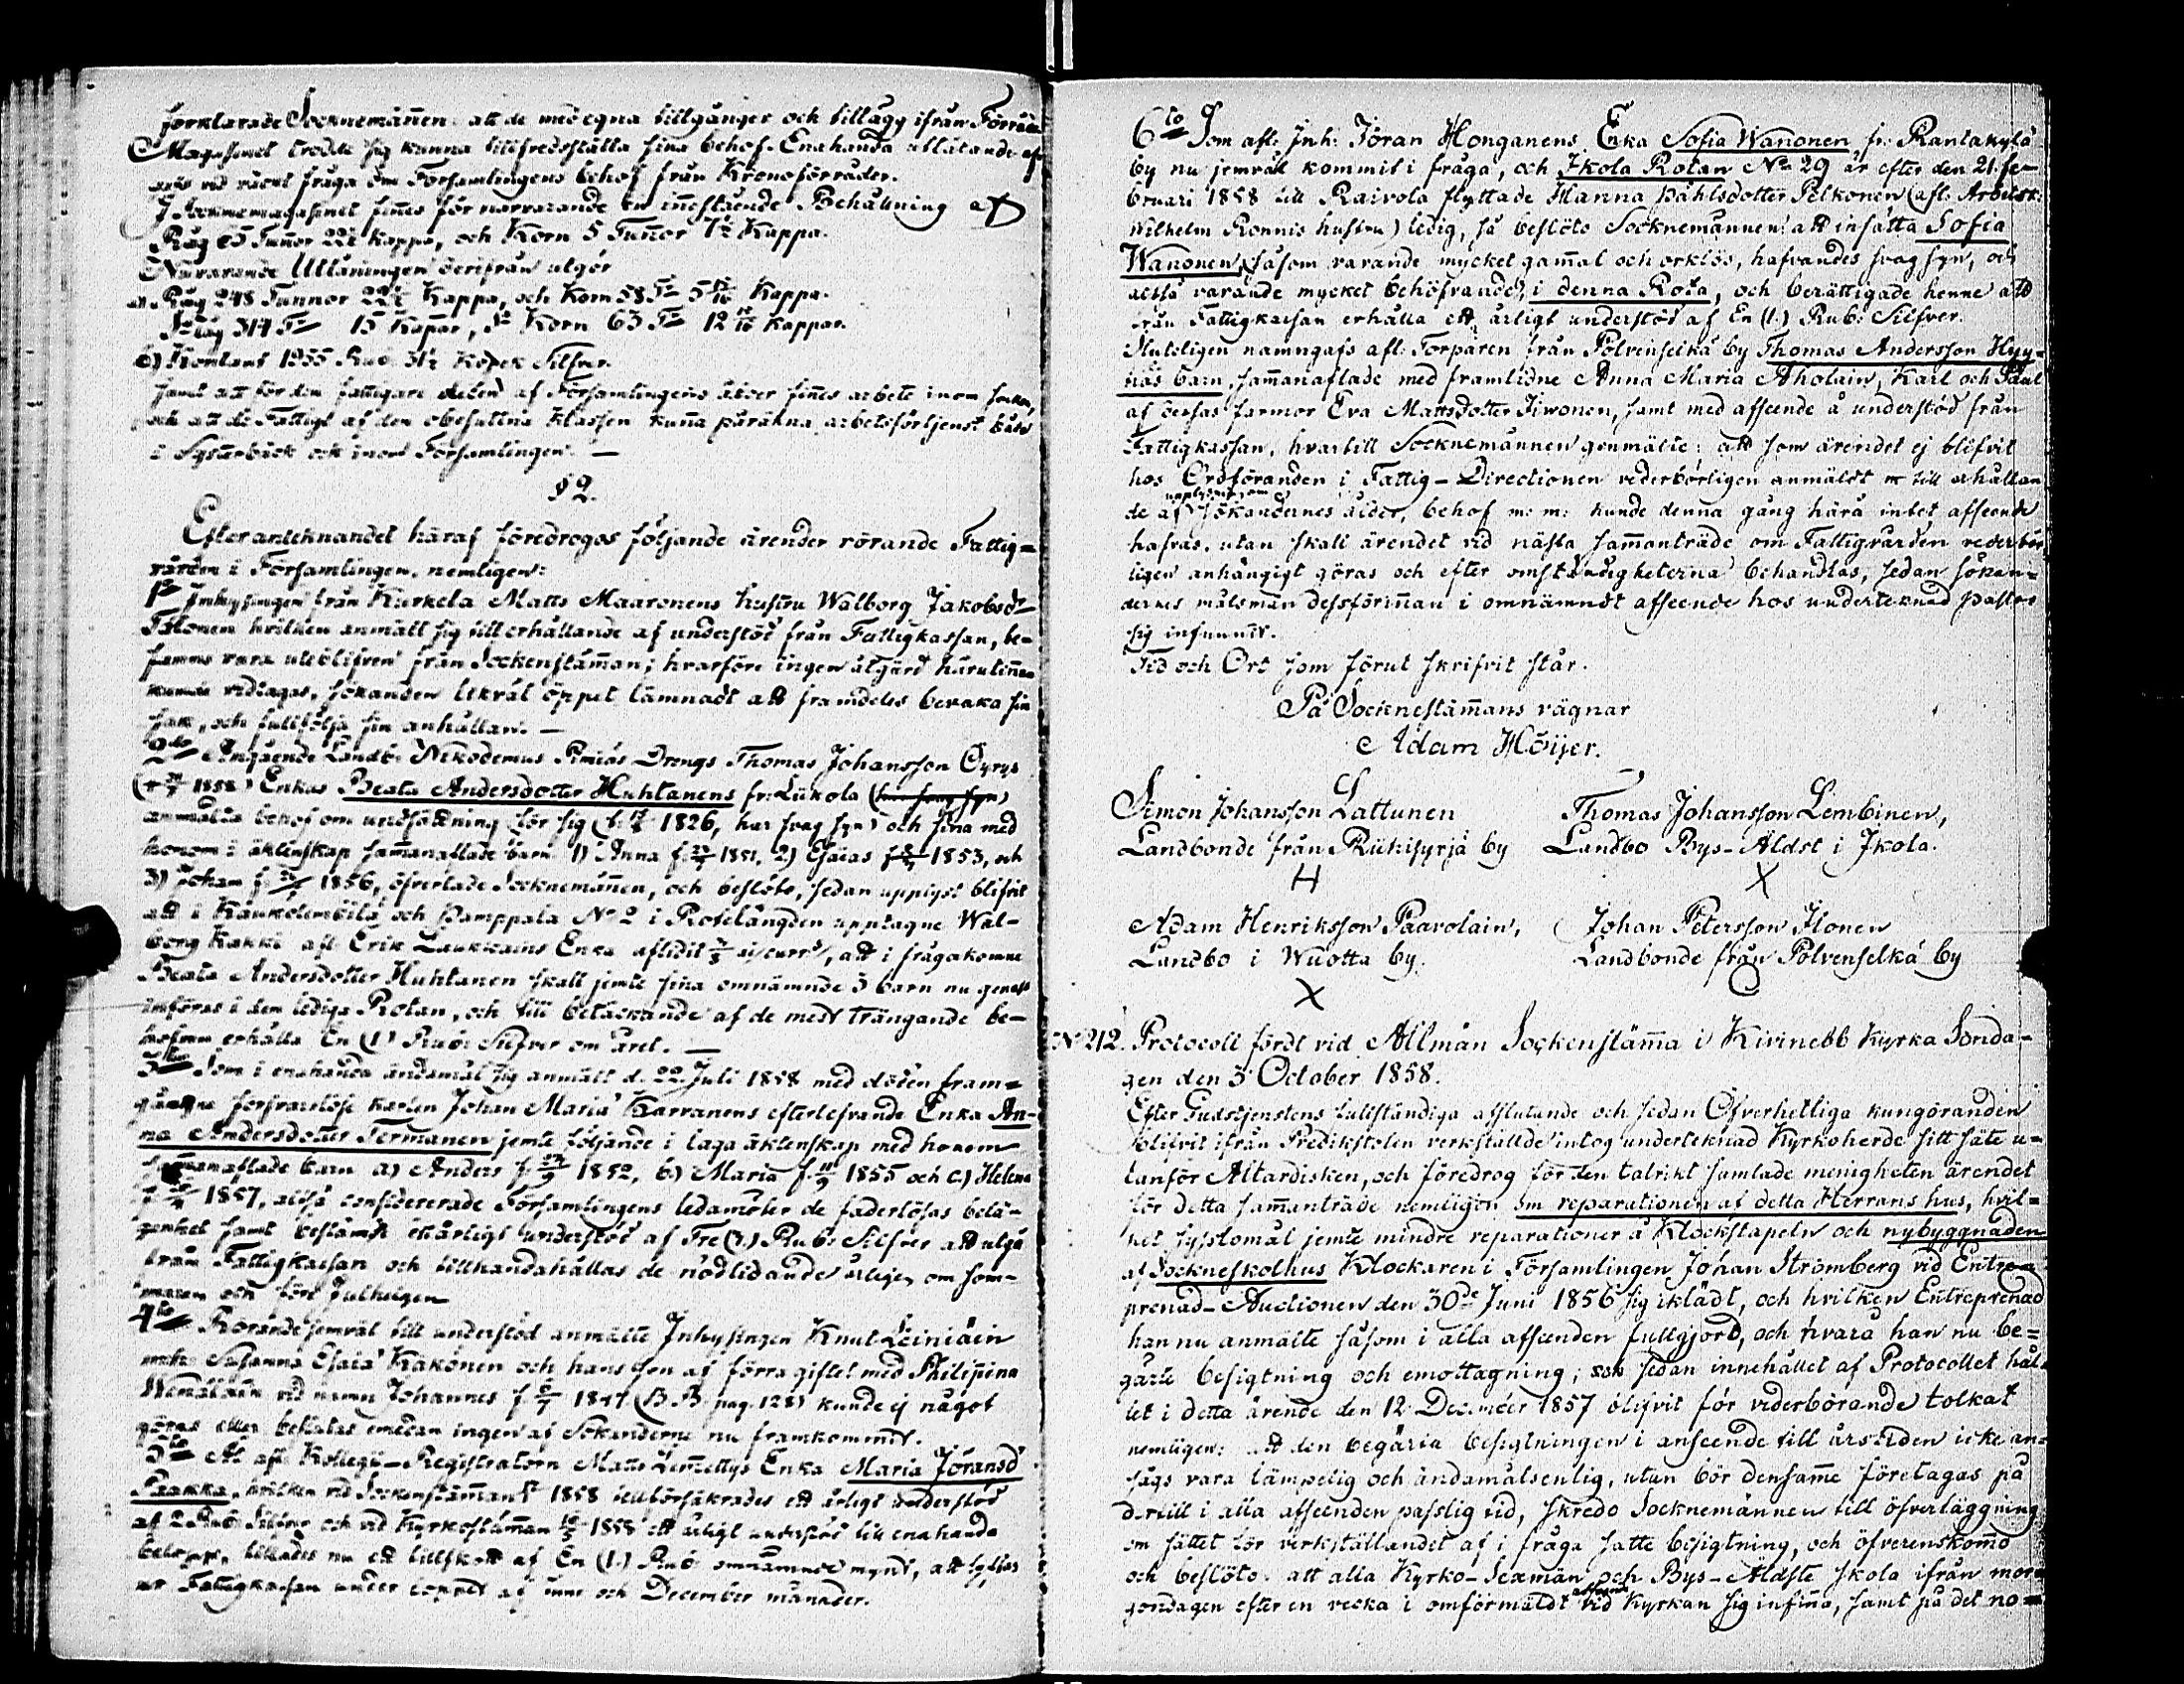 förklarade Socknemännen: att de med egna tillgånger och tillägg ifrån Förråds
Magasinet trodde sig kunna tillfredsställa sina behof. Enahanda utlåtande
vid väckt fråga om Församlingens behof från Kronoförråder.
I Socknemagasinet finnes för närvarande en innestående Behållning af
Råg 65 Tunnor 22½ Kappa, och Korn 5 Tunnor 7½ Kappa.
Nuvarande Utlåningen derifrån utgör
a. Råg 248 Tunnor Kappa, och Korn 58 Tr Kappa.
Råg 317 Tr 15 Kappar, Korn 63 Tr Kappar.
b) Kontant 1955 Rub. 31½ Kopek Silfver.
samt att för den fattigare delen af Församlingens åboer finnes arbete inom socknen,
och att de Fattige af den obesuttna Klassen kunna påräkna arbetsförtjenst både
i Systerbäck och inom Församlingen. —
§ 2.
Efter antecknandet häraf föredrogos följande ärender rörande Fattig=
vården i Församlingen, nemligen:
1o Inhysingen från Kurkela Matts Maaronens hustru Walborg Jakobsdr
Talonen hvilken anmält sig till erhållande af understöd från Fattigkassan, be-
fanns vara uteblifven från Sockenstämman; hvarföre ingen åtgärd härutinnan
kunde vidtagas, sökanden likväl öppet lämnadt att framdeles bevaka sin
sak, och fullfölja sin anhållan. —
2do Angående Landb. Nikodemus Pimiäs Drengs Thomas Johansson Öyrys
1858) Enkas Beata Andersdotter Huhtanens fr. Liikola (har svag syn)
anmälda behof om undsättning för sig 1826, har svag syn) och sina med
honom i äktenskap sammanaflade barn 1) Anna f. 1851, 2) Esaias f. 1853, och
3) Johan f. 1856, öfverlade Socknemännen, och beslöto, sedan upplyst blifvit
att i Kaukolemkilä och Pamppala No 2 i Rotelängden upptagne Wal-
borg Kakki afl. Erik Laukkains Enka aflidit, att i frågakomne
Beata Andersdotter Huhtanen skall jemte sina omnämnde 3 barn nu genast
införas i den lediga Rotan, och till betäckande af de mest trängande be-
hofven erhålla En (1) Rub: Silfver om året. —
3tio Som i enahanda ändamål sig anmält d. 22 Juli 1858 med döden fram-
gångne försvarslöse karlen Johan Maria Karvanens efterlefvande Enka An-
na Andersdotter Termanen jemte följande i laga äktenskap med honom
sammanaflade barn a) Anders f. 1852, b) Maria f. 1855 och c) Helena
f. 1857, altså considererade Församlingens ledamöter de faderlösas belä-
genhet samt bestämde ettårligt understöd af Tre (3.) Rub: Silfver att utgå
från Fattigkassan och tillhandahållas de nödlidande årligen om som-
maren och före Julhelgen
4to Rörande jemväl till understöd anmälte Inhysingen Knut Leiniäin
Susanna Esaiä Kakönen och hans son af förra giftet med Philippina
vid namn Johannes f. 1847 (B.B. pag. 128) kunde ej något
göras eller beslutas emedan ingen af Sökanderne nu framkommit.
5to At afl. Kollegii-Registratorn Matts Lemettys Enka Maria Jöransd
Paakka, hvilken vid Sockenstämman 1858 tillförsäkrades ett årligt understöd
af 2 Rub: Silfver och vid Kyrkostämman 1858 ett årligt understöd till enahanda
belopp, tillades nu ett tillskott af En (1.) Rub: omnämnde mynt, att lyftas
ur Fattigkassan under loppet af inne och December månader.
6to Som afl. Inh. Jöran Honganens Enka Sofia Wanonen fr. Rantakylä
by nu jemväl kommit i fråga, och Ikola Rotan No 29 är efter den 21. Fe-
bruari 1858 till Raivola flyttade Hanna Påhlsdotter Pelkonen (afl. Arbetsk.
Wilhelm Ronnis hustru) ledig, så beslöto Socknemännen: att insätta Sofia
Wanonen, såsom varande mycket gammal och orklös, hafvandes svag syn, och
altså varande mycket behöfvande, i denna Rota, och berättigade henne att
från Fattigkassan erhålla ett årligt understöd af En (1.) Rub: Silfver.
Slutligen namngafs afl. Torparen från Polvenselkä by Thomas Andersson Hyy-
näs barn, sammanaflade med framlidne Anna Maria Aholain, Karl och Paul
af deras farmor Eva Mattsdotter Iiwonen, samt med afseende å understöd från
Fattigkassan, hvartill Socknemännen genmälte: att som ärendet ej blifvit
hos Ordföranden i Fattig-Directionen vederbörligen anmäldt till erhållan
upplysning om
de af Sökandernes ålder, behof m: m: kunde denna gång härå intet afseende
hafvas, utan skall ärendet vid nästa sammanträde om Fattigvården vederbör
ligen anhängigt göras och efter omständigheterna behandlas, sedan sökan-
dernes målsman dessförinnan i omnämndt afseende hos undertecknad Pastor
sig infunnit.
Tid och Ort som förut skrifvit står.
På Socknestämmans vägnar
Adam Höijer.
Simon Johansson Lattunen
Landbonde från Riihisyrjä by
H
Thomas Johansson Lembinen,
Landbo Bys-Äldst i Ikola.
X
Adam Henriksson Paavolain,
Landbo i Wuotta by.
X
Johan Petersson Ilonen
Landbonde från Polvenselkä by
C
No 212. Protocoll fördt vid Allmän Sockenstämma i Kivinebb Kyrka Sönda-
gen den 3 October 1858.
Efter Gudstjenstens fullständiga afslutande och sedan Öfverhetliga kungöranden
blifvit ifrån Predikstolen verkställde intog undertecknad Kyrkoherde sitt säte u-
tanför Altardisken, och föredrog för den talrikt samlade menigheten ärendet
för detta sammanträde nemligen om reparationen af detta Herrans hus, hvil-
ket sysslomål jemte mindre reparationer å Klockstapeln och nybyggnaden
af Sockneskolhus Klockaren i Församlingen Johan Strömberg vid Entre-
prenad-Auctionen den 30de Juni 1856 sig iklädt, och hvilken Entreprenad
han nu anmälte såsom i alla afseenden fullgjord, och hvarå han nu be-
gärte besigtning och emottagning; och sedan innehållet af Protocollet hål-
let i detta ärende den 12 December 1857 blifvit för vederbörande tolkat
nemligen: att den begärta besigtningen i anseende till årstiden icke an-
sågs vara lämpelig och ändamålsenlig, utan bör densamme företagas på
dertill i alla afseenden passlig tid, skredo Socknemännen till öfverläggning
om sättet för verkställandet af i fråga satte besigtning, och öfverenskommo
och beslöto: att alla Kyrko-Sexmän och Bys-Äldste skola ifrån mor-
gondagen efter en vecka i omförmäldt vid Kyrkan sig infinna, samt på det no-